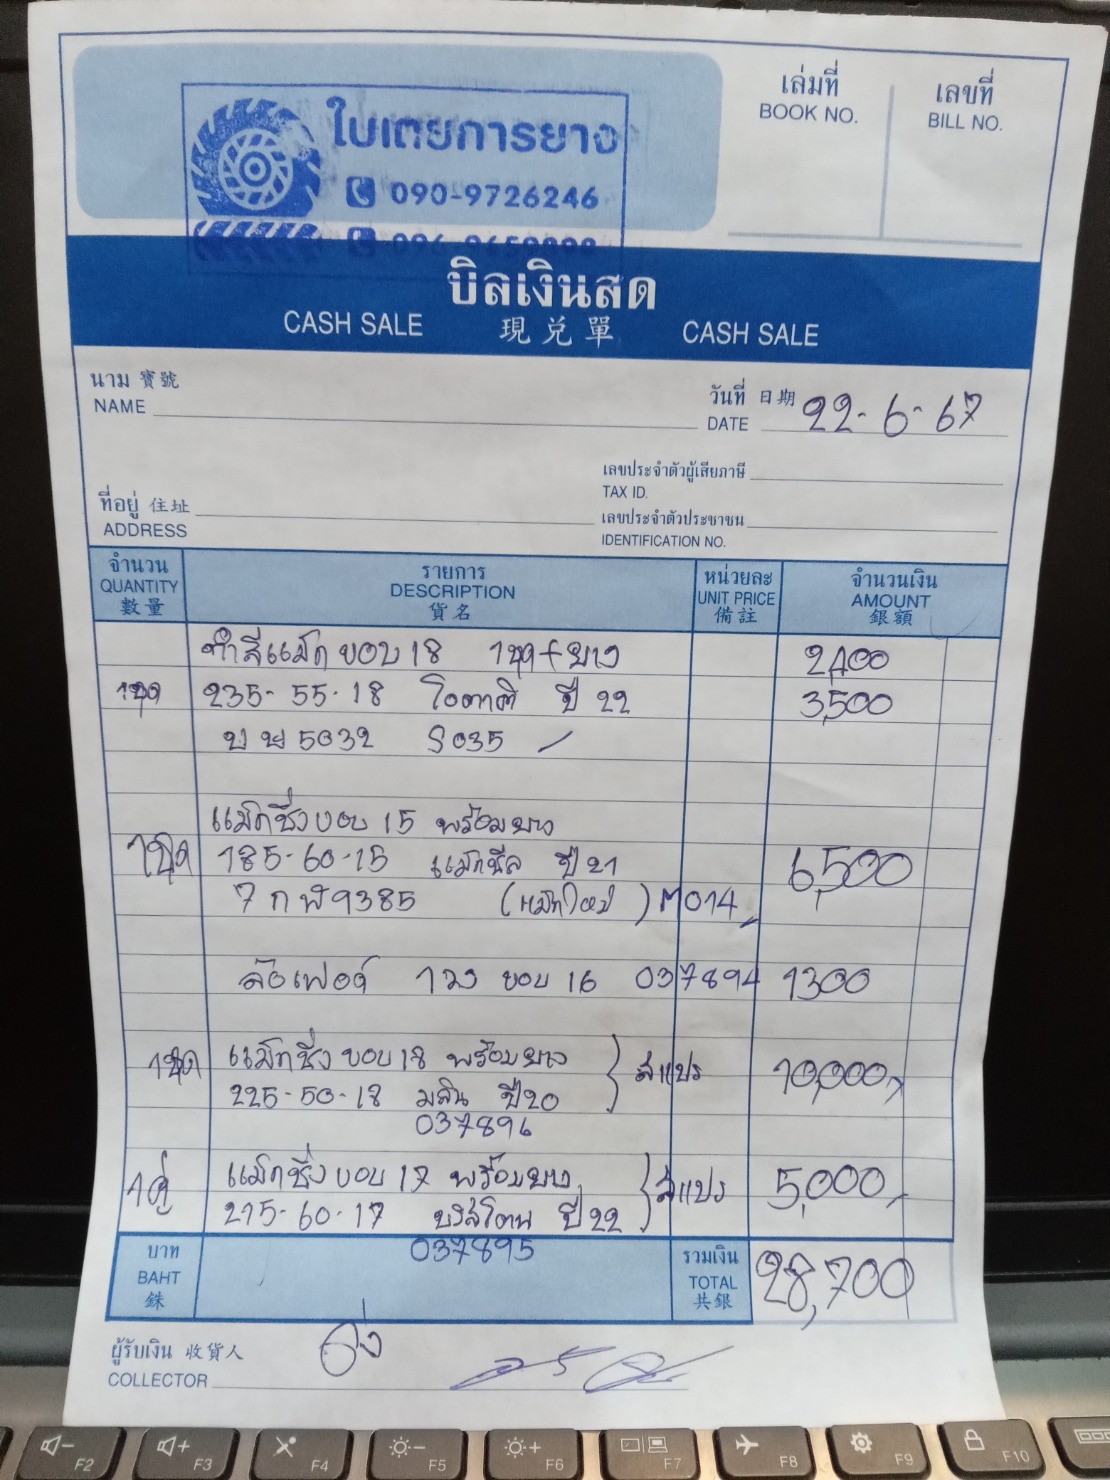 ใบเตยการยาง
090-9726246
เล่มที่
BOOK NO.
เลขที่
BILL NO.
บิลเงินสด
CASH SALE 現兌單 CASH SALE
นาม 寶號
NAME
วันที่ 日期 22-6-67
DATE
เลขประจำตัวผู้เสียภาษี
TAX ID.
ที่อยู่ 住址
ADDRESS
เลขประจำตัวประชาชน
IDENTIFICATION NO.
จำนวน รายการ หน่วยละ จำนวนเงิน
QUANTITY DESCRIPTION UNIT PRICE AMOUNT
數量 貨名 備註 銀額
ทำสีแม็ก ขอบ 18 1ชุด+ยาง 2,400
1ชุด 235-55-18 โอตานิ ปี 22 3,500
บษ 5032 S035
แม็กซิ่งขอบ 15 พร้อมยาง
1ชุด 185-60-15 แม็กซีส ปี 21 6,500
7กฬ9385 (แม็กใหม่) M014
ล้อเฟอร์ 1วง ขอบ 16 037894 1300
1ชุด แม็กซิ่งขอบ 18 พร้อมยาง สแปร 10,000,-
225-50-18 มลิน ปี20
037896
1คู่ แม็กซิ่งขอบ 17 พร้อมยาง สแปร 5,000,-
215-60-17 บริสโตน ปี 22
037895
บาท
BAHT
銖
รวมเงิน
TOTAL
共銀
28,700
ผู้รับเงิน 收貨人
COLLECTOR
F2 F3 F4 F5 F6 F7 F8 F9 F10